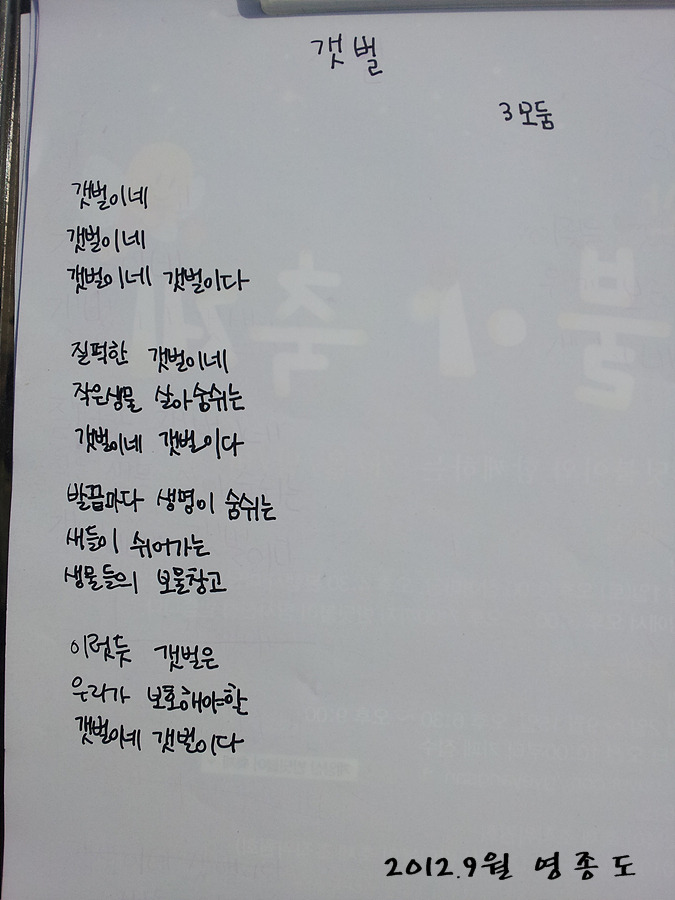 갯벌
3모둠
갯벌이네
갯벌이네
갯벌이네 갯벌이다
질퍽한 갯벌이네
작은생물 살아숨쉬는
갯벌이네 갯벌이다
발끔마다 생명이 숨쉬는
새들이 쉬어가는
생물들의 보물창고
이렇듯 갯벌은
우리가 보호해야할
갯벌이네 갯벌이다
2012.9월 영종도